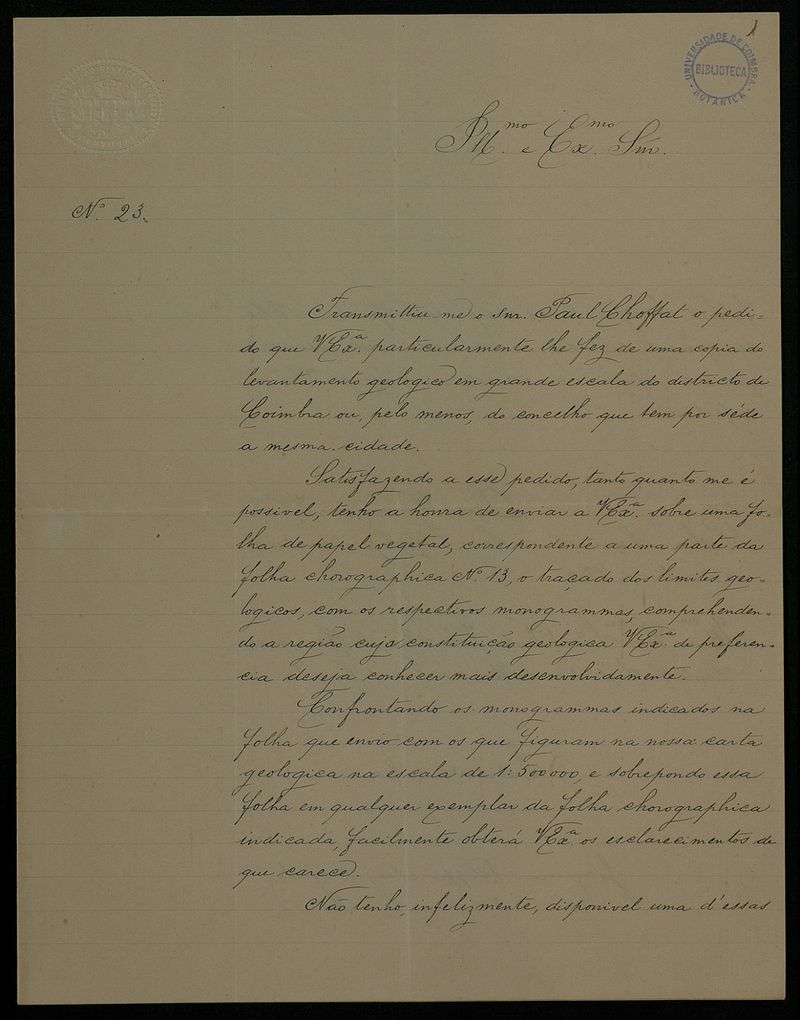 1
UNIVERSIDADE DE COIMBRA
BIBLIOTECA
BOTANICA
Ill.mo e Ex.mo Snr.
N.o 23.
Transmittiu-me o snr. Paul Choffat o pedi=
do que VEx.a particularmente lhe fez de uma copia do
levantamento geologico em grande escala do districto de
Coimbra ou, pelo menos, do concelho que tem por séde
a mesma cidade.
Satisfazendo a esse pedido, tanto quanto me é
possivel, tenho a honra de enviar a VEx.a sobre uma fo-
lha de papel vegetal, correspondente a uma parte da
folha chorographica N.o 13, o traçado dos limites geo-
logicos, com os respectivos monogrammas, comprehenden-
do a região cuja constituição geologica VEx.a de preferen-
cia deseja conhecer mais desenvolvidamente.
Confrontando os monogrammas indicados na
folha que envio com os que figuram na nossa carta
geologica na escala de 1:500000, e sobrepondo essa
folha em qualquer exemplar da folha chorographica
indicada, facilmente obterá VEx.a os esclarecimentos de
que carece.
Não tenho, infelizmente, disponivel uma d'essas